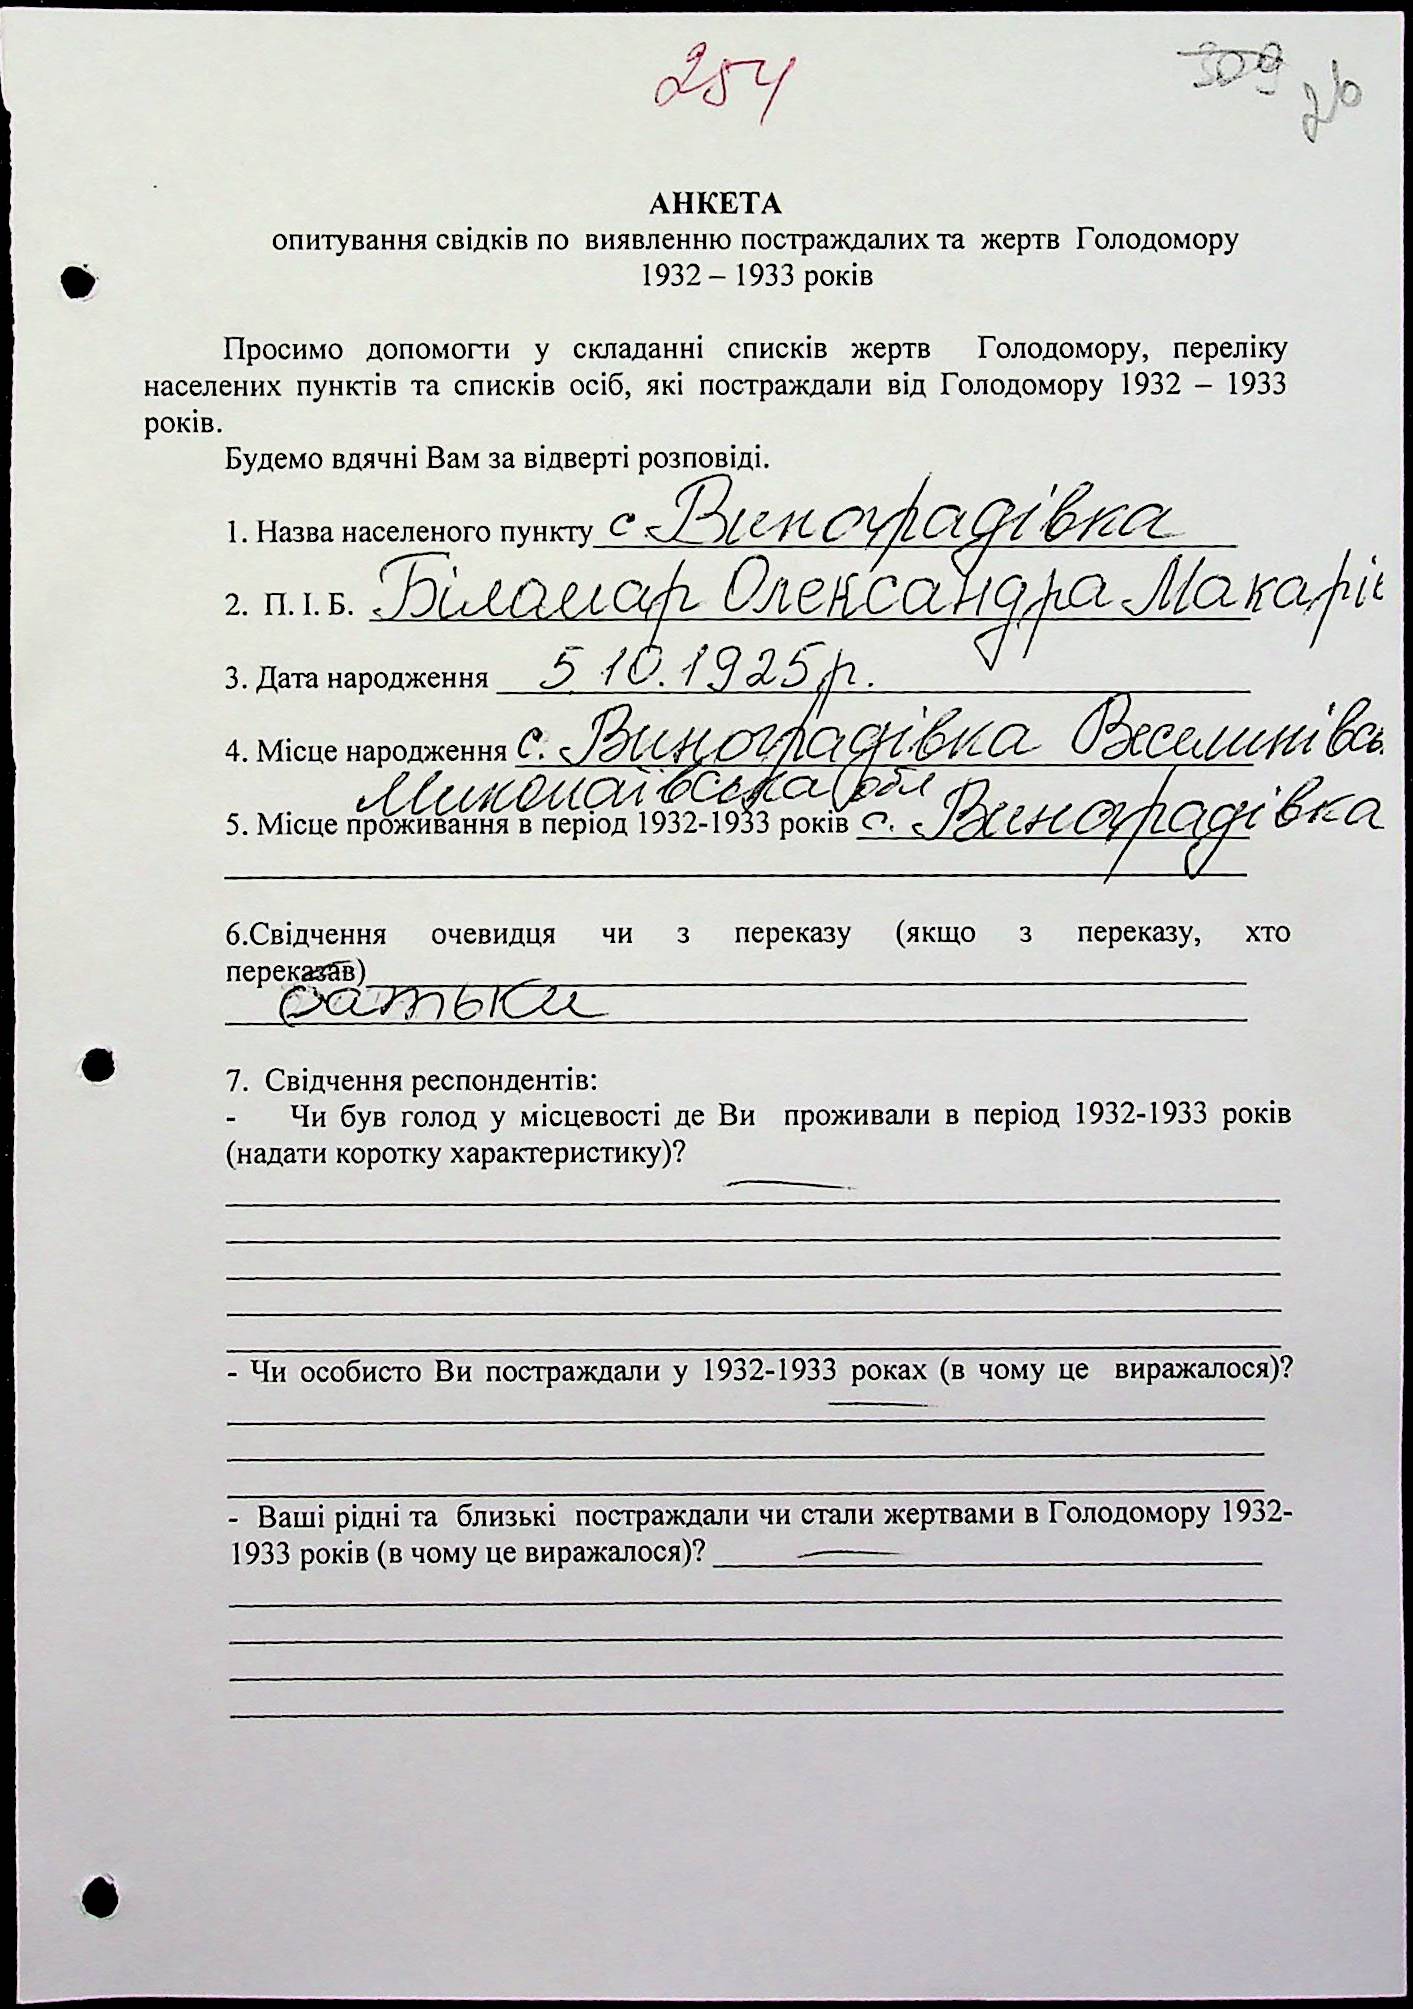 254
309
АНКЕТА
опитування свідків по виявленню постраждалих та жертв Голодомору
1932 – 1933 років
Просимо допомогти у складанні списків жертв Голодомору, переліку
населених пунктів та списків осіб, які постраждали від Голодомору 1932 – 1933
років.
Будемо вдячні Вам за відверті розповіді.
1. Назва населеного пункту с. Виноградівка
2. П. І. Б. Біламар Олександра Макарів
3. Дата народження 5.10.1925 р.
4. Місце народження с. Виноградівка Веселинівсь
Миколаївська обл
5. Місце проживання в період 1932-1933 років с. Виноградівка
6.Свідчення очевидця чи з переказу (якщо з переказу, хто
переказав)
батьки
7. Свідчення респондентів:
- Чи був голод у місцевості де Ви проживали в період 1932-1933 років
(надати коротку характеристику)?
—
- Чи особисто Ви постраждали у 1932-1933 роках (в чому це виражалося)?
—
- Ваші рідні та близькі постраждали чи стали жертвами в Голодомору 1932-
1933 років (в чому це виражалося)? —